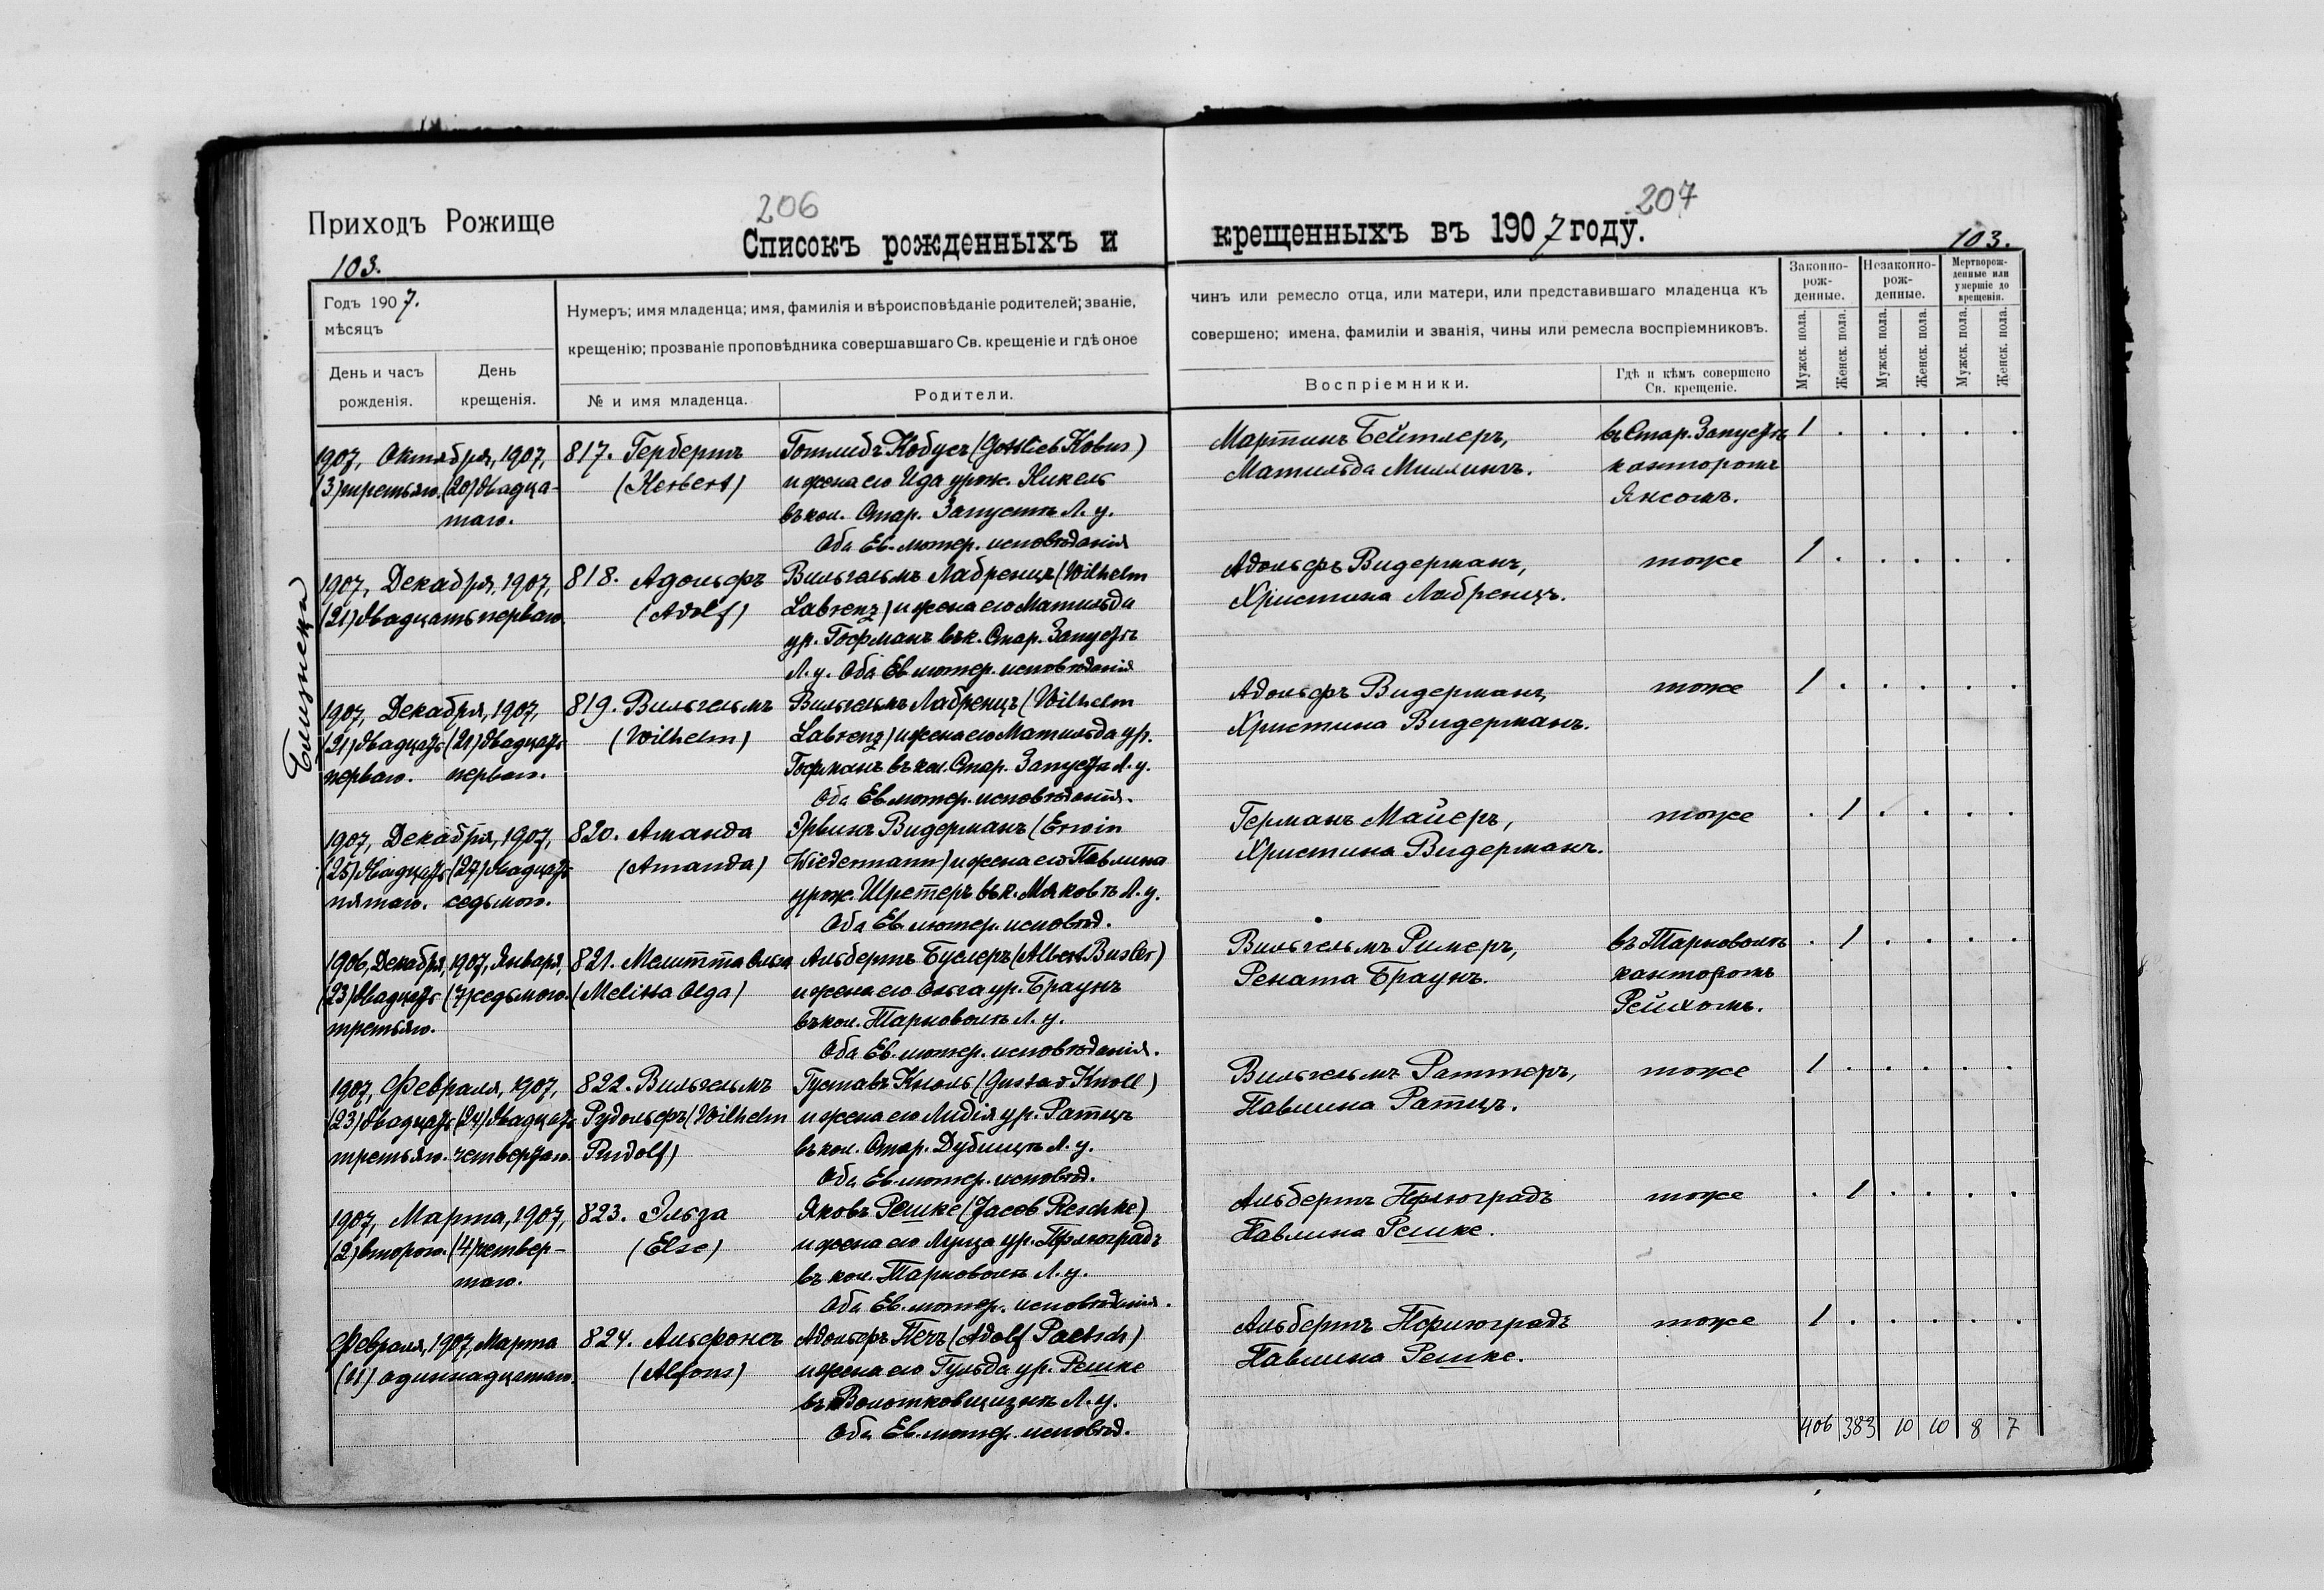 206
207
Приходъ Рожище
Списокъ рожденныхъ и
крещенныхъ въ 1907 году.
103.
103.
Годъ 1907.
мѣсяцъ
День и часъ
рожденія.
День
крещенія.
Нумеръ; имя младенца; имя, фамилія и вѣроисповѣданіе родителей; званіе,
крещенію; прозваніе проповѣдника совершавшаго Св. крещеніе и гдѣ оное
№ и имя младенца.
Родители.
чинъ или ремесло отца, или матери, или представившаго младенца къ
совершено; имена, фамиліи и званія, чины или ремесла воспріемниковъ.
Воспріемники.
Гдѣ и кѣмъ совершено
Св. крещеніе.
Законно-
рож-
денные.
Незаконно-
рож-
денные.
Мертворож-
денные или
умершіе до
крещенія.
Мужск. пола.
Женск. пола.
Мужск. пола.
Женск. пола.
Мужск. пола.
Женск. пола.
1907, Октября, 1907,
(3) третьяго. (20) двадца-
таго.
817. Гербертъ
(Herbert)
Готлибъ Кобусъ (Gottlieb Kobus)
и жена его Ида урож. Никель
въ кол. Стар. Запустѣ Л. у.
Оба Ев. лютер. исповѣданія
Мартинъ Бейтлеръ,
Матильда Миллинъ.
въ Стар. Запустѣ
канторомъ
Янсомъ.
1 . . . . .
Близнецы
1907, Декабря, 1907,
(21) двадцать перваго.
818. Адольфъ
(Adolf)
Вильгельмъ Лабренцъ (Wilhelm
Labrenz) и жена его Матильда
ур. Гофманъ въ к. Стар. Запустѣ
Л. у. Оба Ев. лютер. исповѣданія
Адольфъ Видерманъ,
Христина Лабренцъ.
тоже
1 . . . . .
1907, Декабря, 1907,
(21) двадцать (21) двадцать
перваго. перваго.
819. Вильгельмъ
(Wilhelm)
Вильгельмъ Лабренцъ (Wilhelm
Labrenz) и жена его Матильда ур.
Гофманъ въ кол. Стар. Запустѣ Л. у.
Оба Ев. лютер. исповѣданія.
Адольфъ Видерманъ,
Христина Видерманъ.
тоже
1 . . . . .
1907, Декабря, 1907,
(25) двадцать (27) двадцать
пятаго. седьмого.
820. Аманда
(Amanda)
Эрвинъ Видерманъ (Erwin
Wiedermann) и жена его Павлина
урож. Шретеръ въ к. Маковѣ Л. у.
Оба Ев. лютер. исповѣд.
Германъ Майеръ,
Христина Видерманъ.
тоже
. 1 . . . .
1906, Декабря, 1907, Января,
(23) двадцать (7) седьмого.
третьяго.
821. Мелитта Ольга
(Melitta Olga)
Альбертъ Буслеръ (Albert Busler)
и жена его Ольга ур. Браунъ
въ кол. Тарноволѣ Л. у.
Оба Ев. лютер. исповѣданія.
Вильгельмъ Римеръ,
Рената Браунъ.
въ Тарноволѣ
канторомъ
Рейхомъ.
. 1 . . . .
1907, Февраля, 1907,
(23) двадцать (24) двадцать
третьяго. четвертаго.
822. Вильгельмъ
Рудольфъ (Wilhelm
Rudolf)
Густавъ Кноль (Gustav Knoll)
и жена его Лидія ур. Ратцъ
въ кол. Стар. Дубищѣ Л. у.
Оба Ев. лютер. исповѣд.
Вильгельмъ Раттеръ,
Павлина Ратцъ.
тоже
1 . . . . .
1907, Марта, 1907,
(2) второго. (4) четвер-
таго.
823. Эльза
(Else)
Яковъ Решке (Jacob Reschke)
и жена его Луиза ур. Пфлюградъ
въ кол. Тарноволѣ Л. у.
Оба Ев. лютер. исповѣданія.
Альбертъ Пфлюградъ
Павлина Решке.
тоже
. 1 . . . .
Февраля, 1907, Марта
(11) одиннадцатаго.
824. Альфонсъ
(Alfons)
Адольфъ Печъ (Adolf Paetsch)
и жена его Гульда ур. Решке
въ Волотковщизнѣ Л. у.
Оба Ев. лютер. исповѣд.
Альбертъ Пфлюградъ
Павлина Решке.
тоже
1 . . . . .
406 383 10 10 8 7